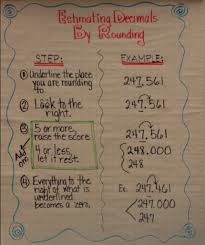 Estimating Decimals
By Rounding
STEP:
① Underline the place
you are rounding
to.
② Look to the
right.
③ 5 or more,
raise the score.
4 or less,
let it rest.
Add one
④ Everything to the
right of what is
underlined
becomes a zero.
EXAMPLE:
247.561
247.561
247.561
248.000
248
Ex. 247.461
247.000
247